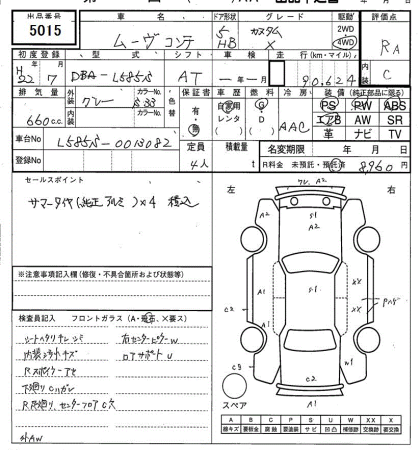 出品番号 車名 ドア形状 グレード 駆動 評価点
5015 ムーヴコンテ 5 HB カスタム X 2WD 4WD RA
初度登録 型式 シフト 車検 走行(km・マイル) 内装
H22 7 DBA-L585S AT 年 月 90,624 C
排気量 外装 グレー カラーNo. S33 色替 保証書 車歴 燃料 冷房 装備(純正部品に限る)
660cc. 内装 カラーNo. 有・無 自家用 レンタ G D AAC PS PW ABS
エアB AW SR
革 ナビ TV
車台No L585S-0013082 定員 積載量 名変期限 年 月 日
登録No 4人 t R料金 未預託・預託済 8,960 円
セールスポイント
サマータイヤ(純正アルミ)×4 積込
左 右
※注意事項記入欄(修復・不具合箇所および状態等)
検査員記入 フロントガラス(A・飛石、×要ス)
シートヘタリ キレ シミ 右センターピラーW
内装シミ キズ ロアサポートU
Rスポイラー
下廻り Cハガレ
R床廻り、センターフロア C穴
外AW
グレ A2
A2 S1 A2
A1 S1 XX XX Pハゲ
C2 A1
C3 C2 W1
A1
スペア
A B C P S U W XX X
線キズ 要板金 腐食 要塗装 サビ 凹凸 補修跡 交換跡 要交換